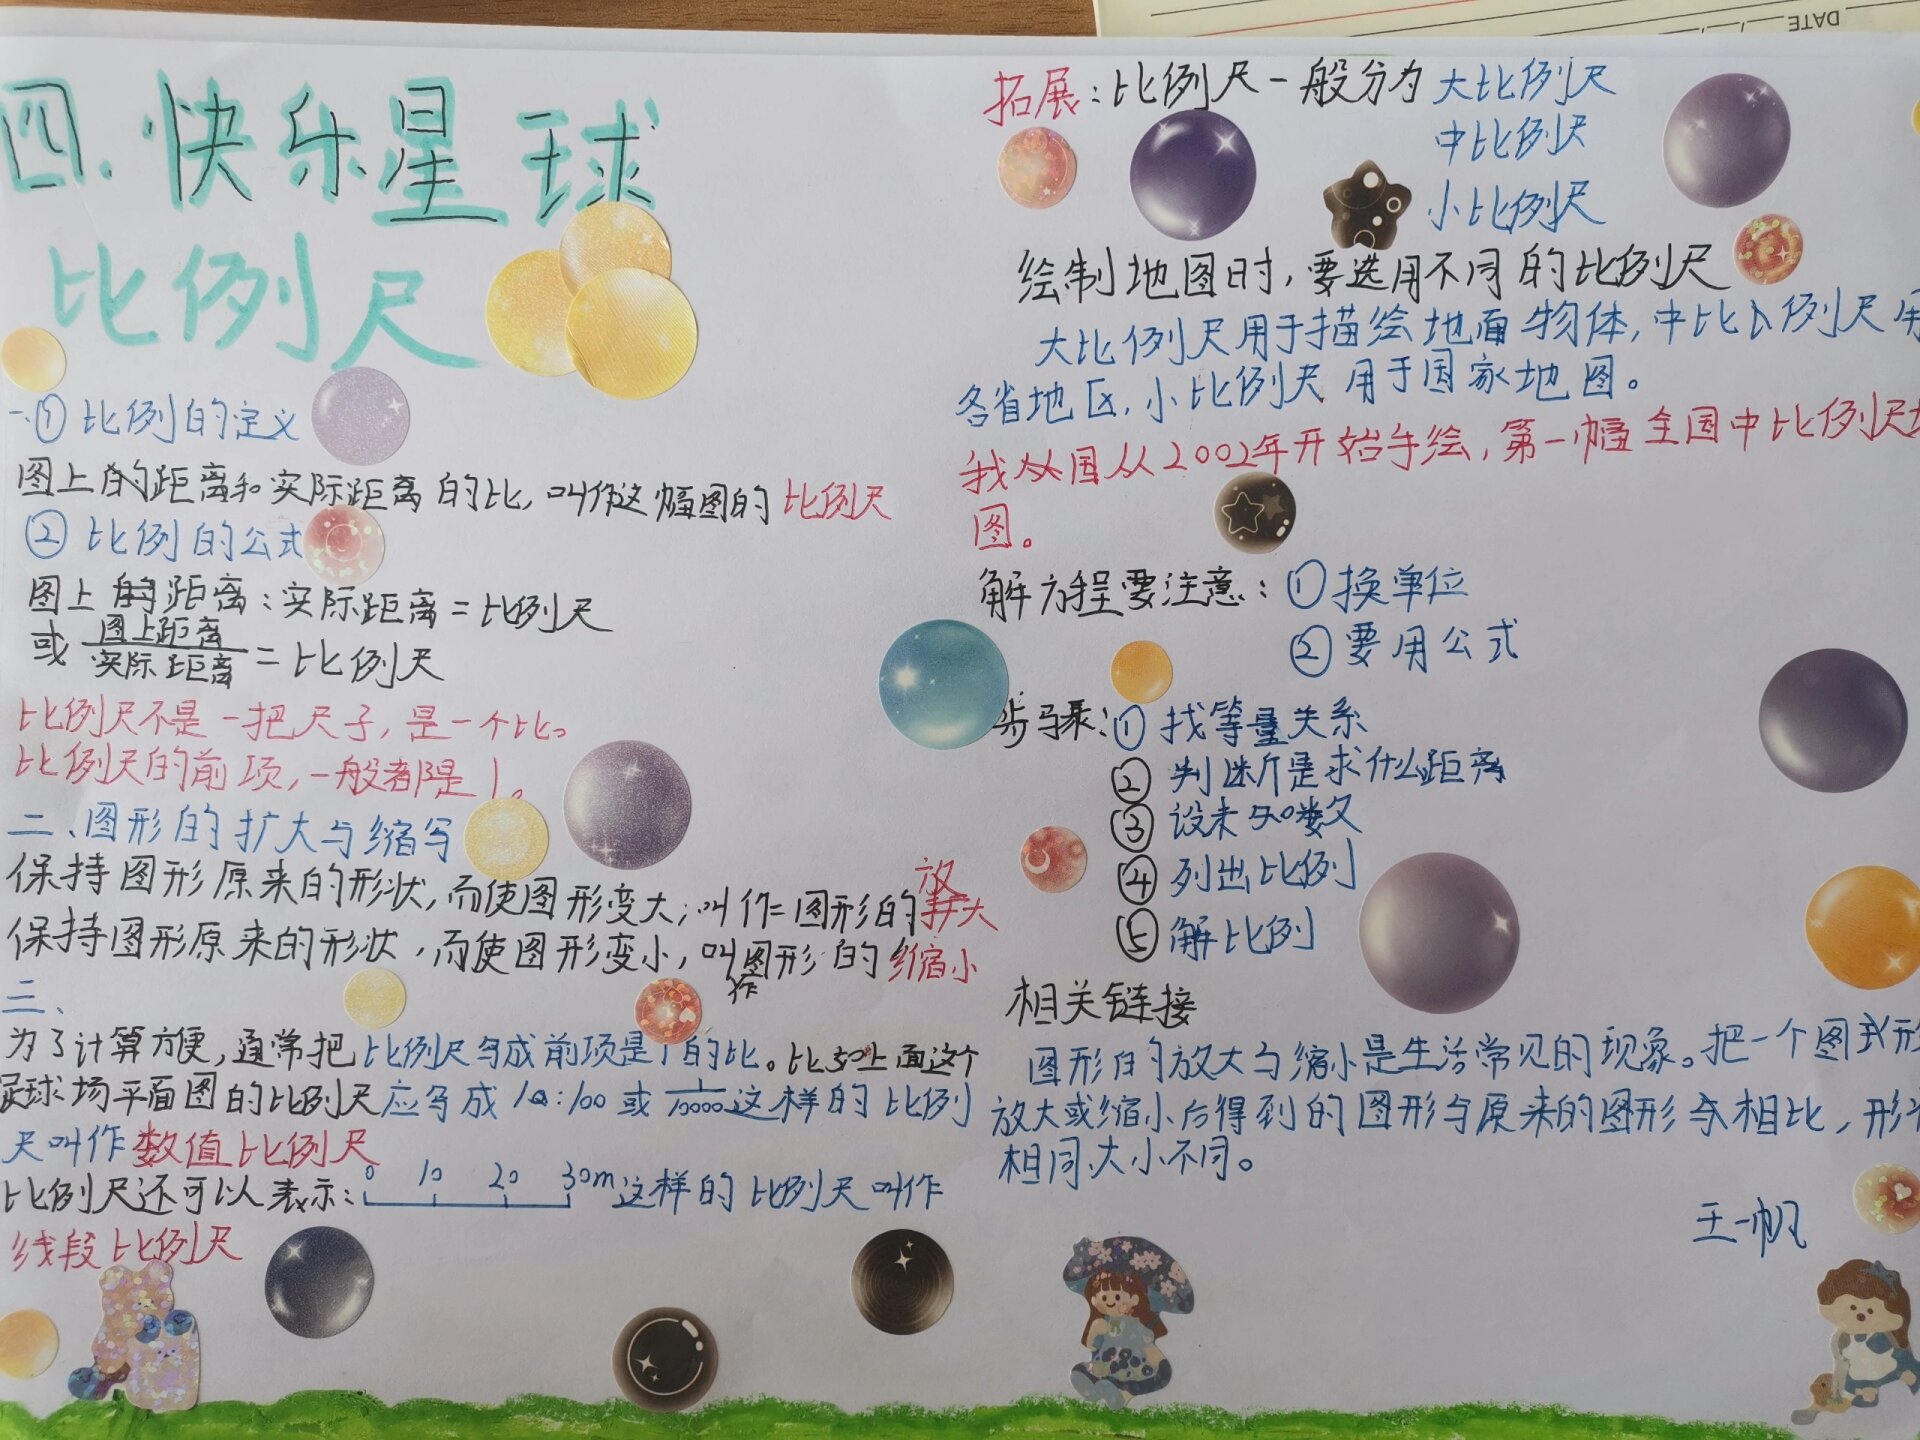 四、快乐星球
比例尺
一、① 比例的定义
图上的距离和实际距离的比,叫作这幅图的比例尺
② 比例的公式
图上距离:实际距离=比例尺
或 图上距离/实际距离 = 比例尺
比例尺不是一把尺子,是一个比。
比例尺的前项,一般都是1。
二、图形的扩大与缩写
保持图形原来的形状,而使图形变大,叫作图形的放大
保持图形原来的形状,而使图形变小,叫作图形的缩小
三、
为了计算方便,通常把比例尺写成前项是1的比。比如上面这个
足球场平面图的比例尺应写成 :100或1/10000这样的比例
尺叫作数值比例尺
比例尺还可以表示: 0 10 20 30m 这样的比例尺叫作
线段比例尺
DATE
拓展:比例尺一般分为大比例尺
中比例尺
小比例尺
绘制地图时,要选用不同的比例尺
大比例尺用于描绘地面物体,中比例尺用
各省地区,小比例尺用于国家地图。
我国从2002年开始手绘,第一幅全国中比例尺地
图。
解方程要注意:①换单位
②要用公式
步骤:①找等量关系
②判断是求什么距离
③设未知数
④列出比例
⑤解比例
相关链接
图形的放大与缩小是生活常见的现象。把一个图形
放大或缩小后得到的图形与原来的图形相比,形状
相同,大小不同。
王一帆